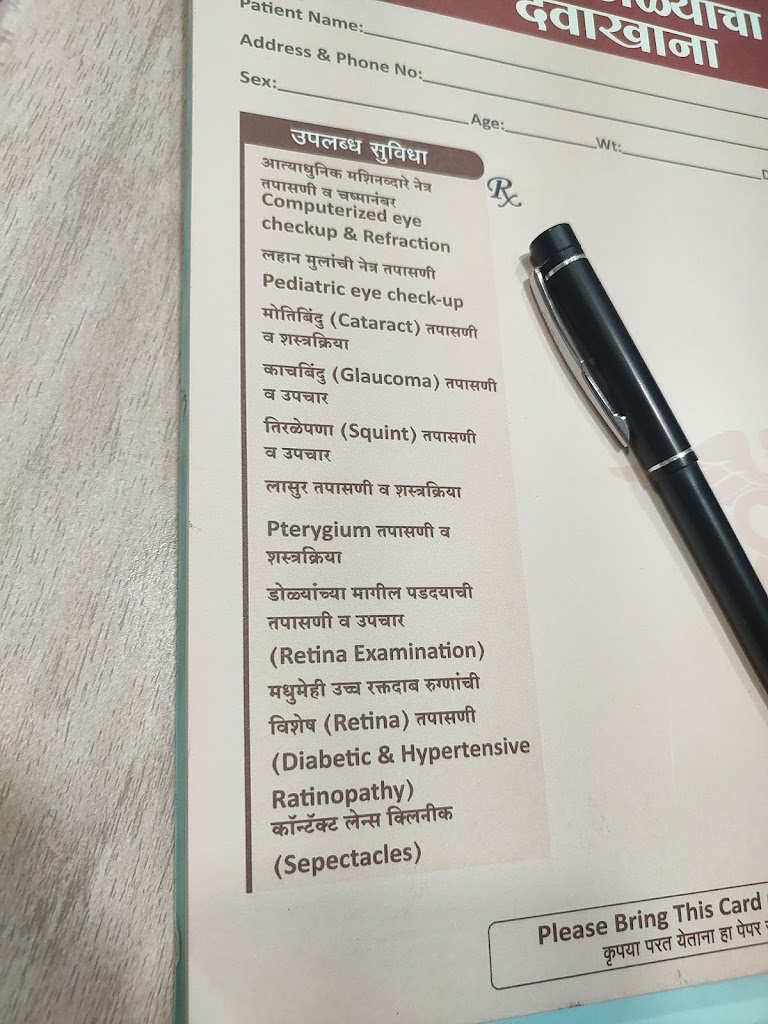 दवाखाना
Patient Name:
Address & Phone No:
Sex: Age: Wt:
उपलब्ध सुविधा
आत्याधुनिक मशिनव्दारे नेत्र
तपासणी व चष्मानंबर
Computerized eye
checkup & Refraction
लहान मुलांची नेत्र तपासणी
Pediatric eye check-up
मोतिबिंदु (Cataract) तपासणी
व शस्त्रक्रिया
काचबिंदु (Glaucoma) तपासणी
व उपचार
तिरळेपणा (Squint) तपासणी
व उपचार
लासुर तपासणी व शस्त्रक्रिया
Pterygium तपासणी व
शस्त्रक्रिया
डोळ्यांच्या मागील पडदयाची
तपासणी व उपचार
(Retina Examination)
मधुमेही उच्च रक्तदाब रुग्णांची
विशेष (Retina) तपासणी
(Diabetic & Hypertensive
Ratinopathy)
कॉन्टॅक्ट लेन्स क्लिनीक
(Sepectacles)
Rx
Please Bring This Card
कृपया परत येताना हा पेपर